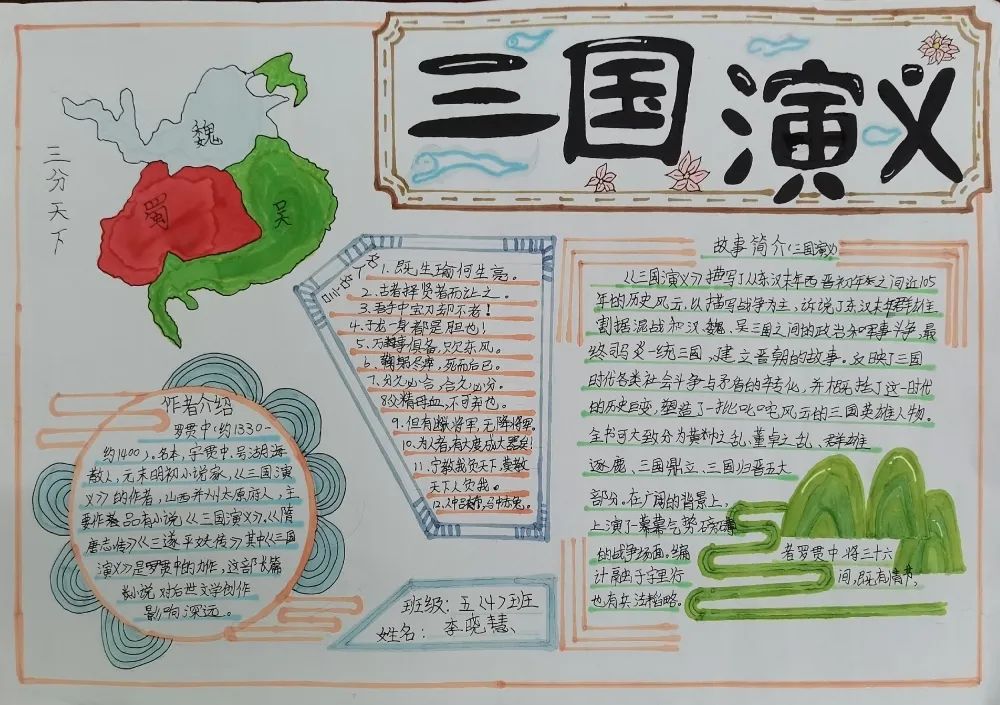 三国演义
三分天下
魏
蜀
吴
三国名句
1. 既生瑜何生亮。
2. 古者择贤者而让之。
3. 吾手中宝刀却不老!
4. 子龙一身都是胆也!
5. 万事俱备,只欠东风。
6. 鞠躬尽瘁,死而后已。
7. 分久必合,合久必分。
8 父精母血,不可弃也。
9. 但有断头将军,无降将军。
10. 为人者,有大度成大器矣!
11. 宁教我负天下,莫教
天下人负我。
12. 人中吕布,马中赤兔。
故事简介《三国演义》
《三国演义》描写了从东汉末年西晋初年之间近105
年的历史风云,以描写战争为主,诉说了东汉末年群雄
割据混战和汉、魏、吴三国之间的政治和军事斗争,最
终司马炎一统三国,建立晋朝的故事。反映了三国
时代各类社会斗争与矛盾的转化,并概括了这一时代
的历史巨变,塑造了一批叱咤风云的三国英雄人物。
全书可大致分为黄巾之乱、董卓之乱、群雄
逐鹿、三国鼎立、三国归晋五大
部分。在广阔的背景上,
上演了一幕幕气势磅礴
的战争场面。编者罗贯中将三十六
计融于字里行间,既有情节,
也有兵法韬略。
作者介绍
罗贯中(约1330-
约1400)。名本,字贯中,号湖海
散人,元末明初小说家,《三国演
义》的作者,山西并州太原府人,主
要作品有小说《三国演义》、《隋
唐志传》《三遂平妖传》其中《三国
演义》是罗贯中的力作,这部长篇
小说对后世文学创作
影响深远。
班级:五(4)班
姓名:李晓慧